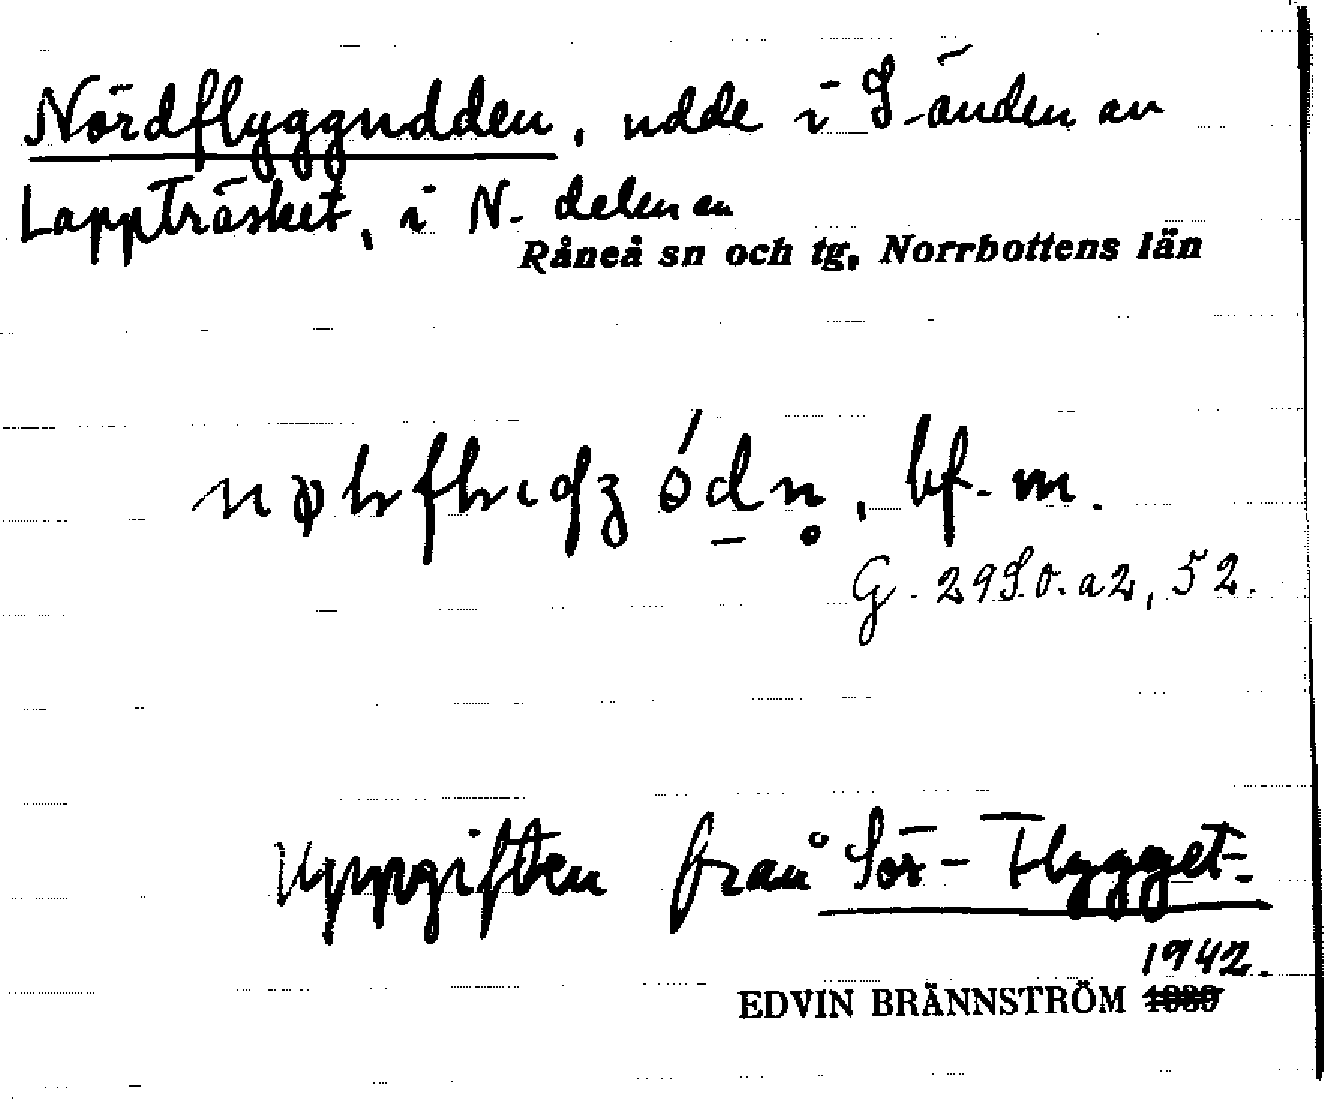 Nördflyggudden, udde i S-änden av
Lappträsket, i N. delen av
Råneå sn och tg, Norrbottens län
bf. m.
G. 29S.v.a2, 52.
Uppgiften från Sör-Flygget.
1942.
EDVIN BRÄNNSTRÖM 1939